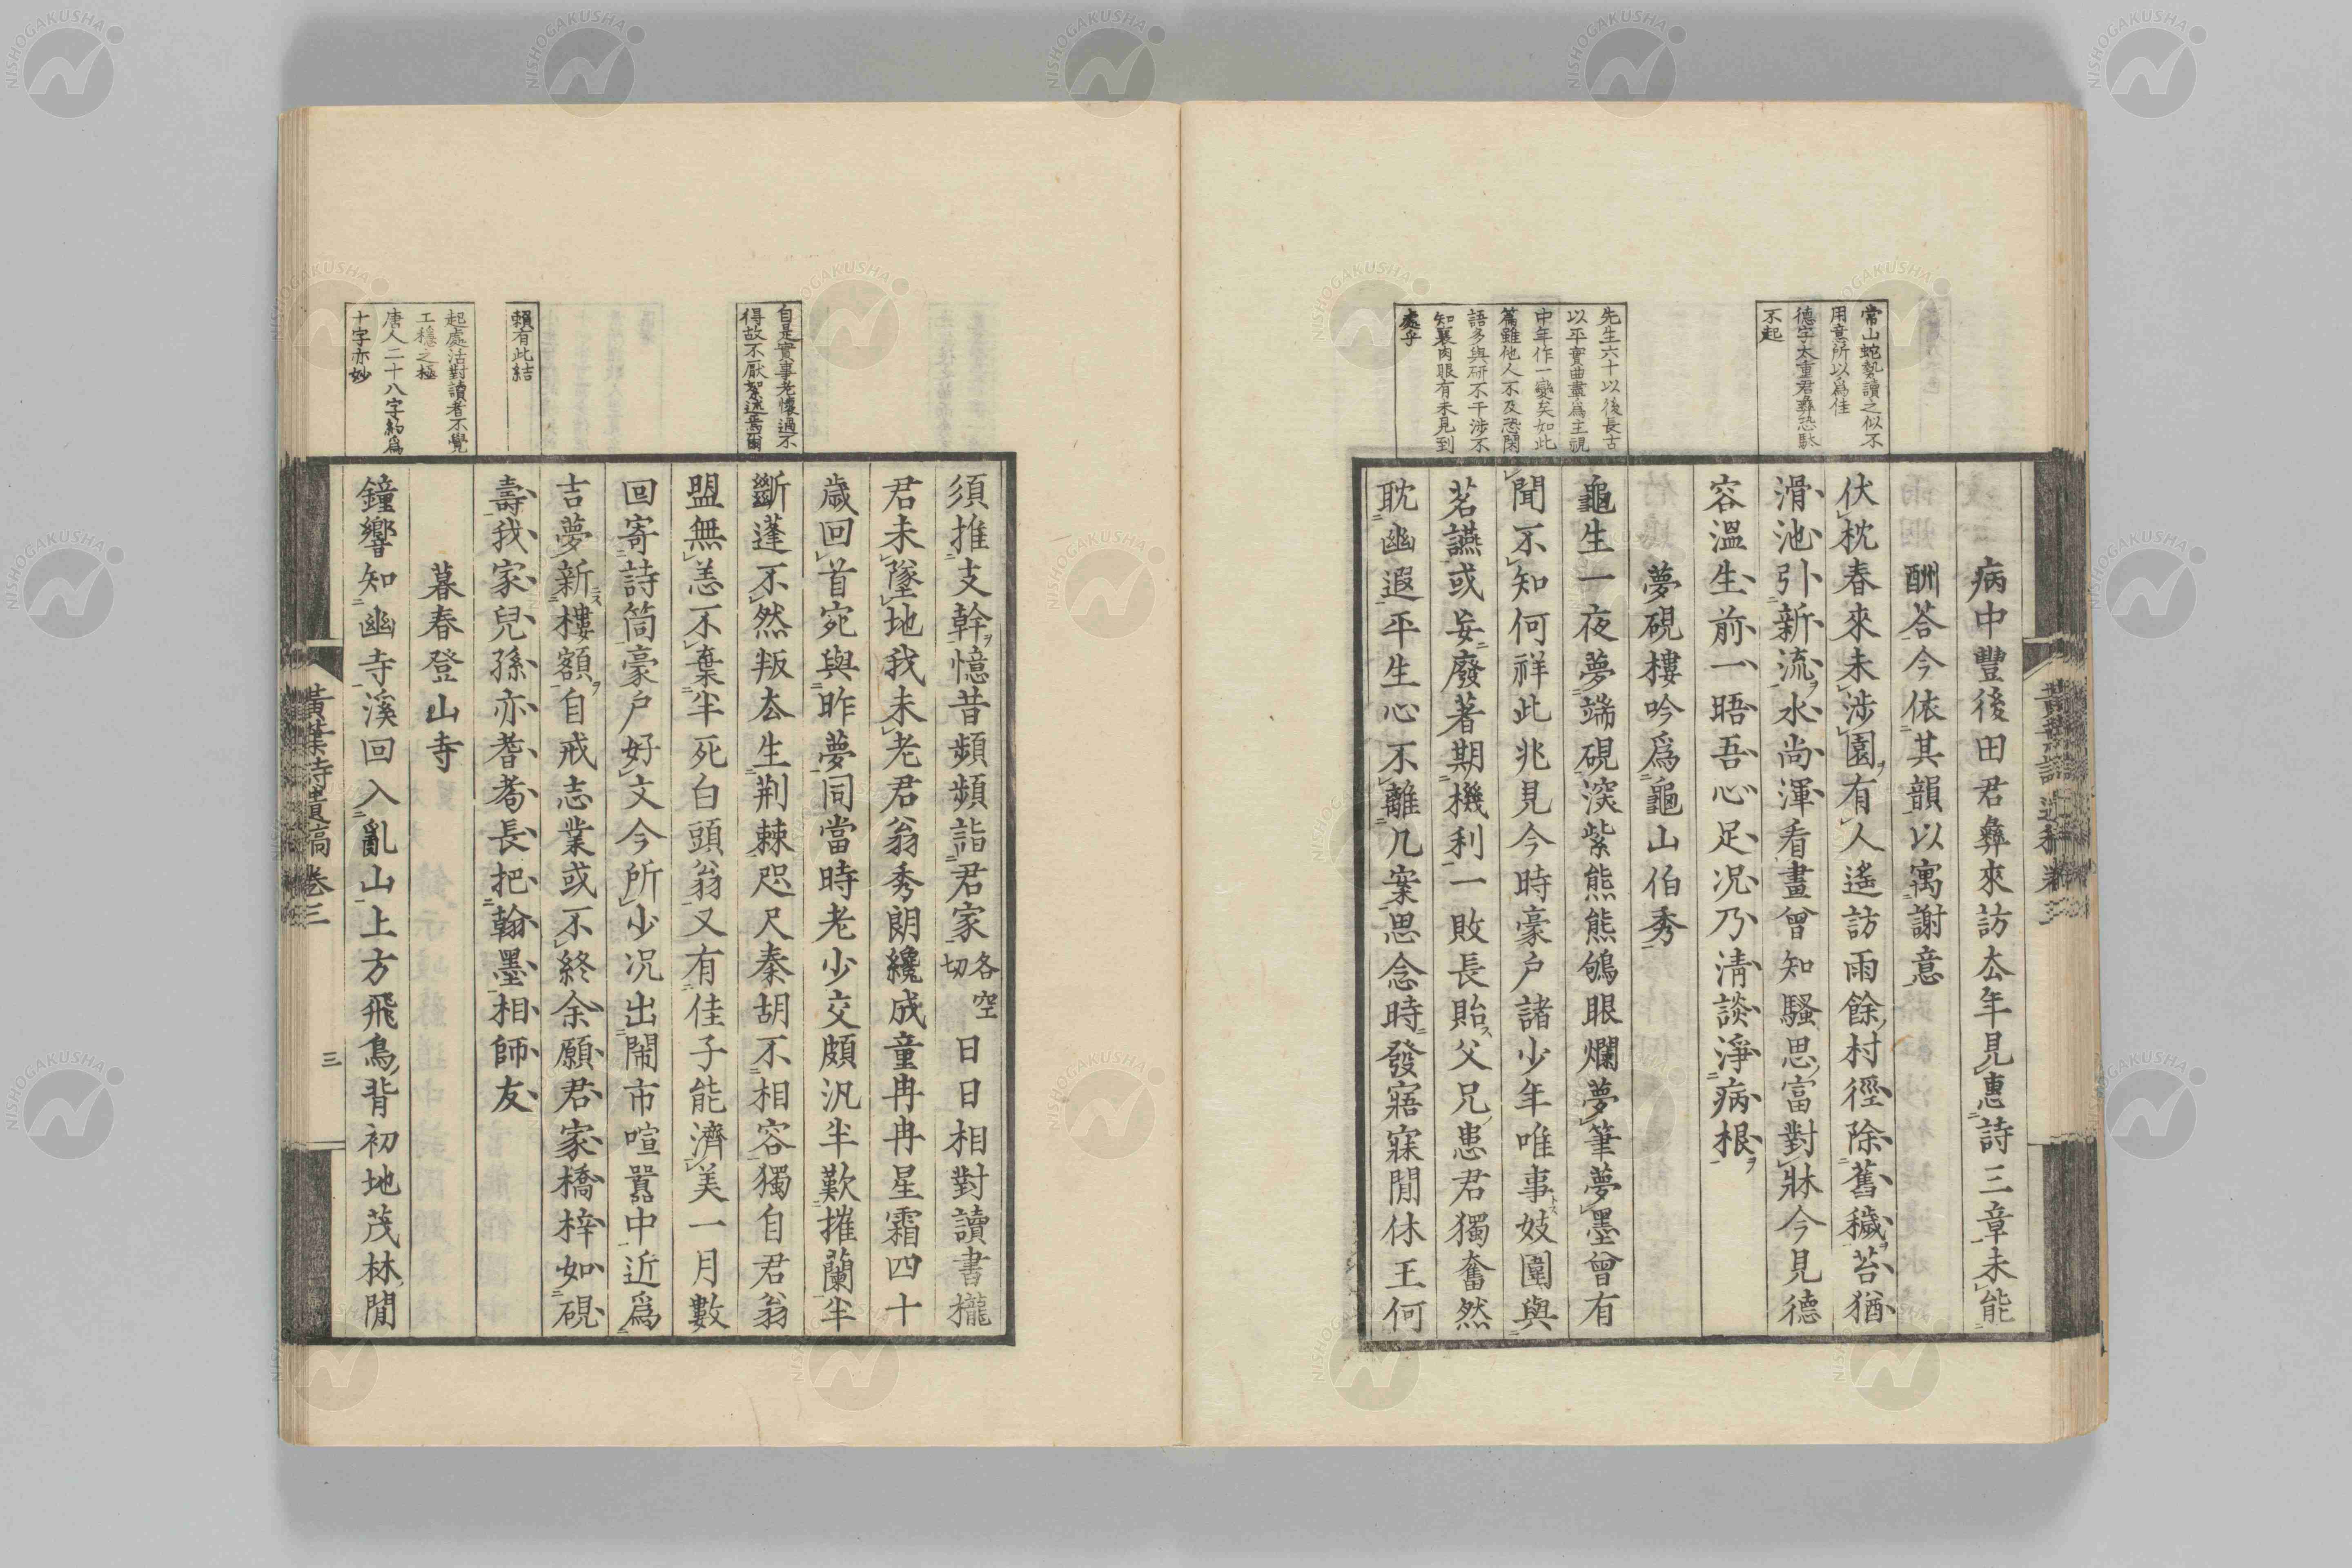 常山蛇勢讀之似不
用意所以爲佳
德字太重君彝恐駄
不起
先生六十以後長古
以平實曲盡爲主視
中年作一變矣如此
篇雖他人不及恐閑
語多與研不干涉不
知襄肉眼有未見到
處乎
病中豐後田君彝來訪去年見惠詩三章未能
酬答今依其韻以寓謝意
伏枕春來未涉園有人遙訪雨餘村徑除舊穢苔猶
滑池引新流水尚渾看畫曾知騷思富對牀今見德
容溫生前一晤吾心足况乃淸談淨病根
夢硯樓吟爲龜山伯秀
龜生一夜夢端硯深紫熊熊鴝眼爛夢筆夢墨曾有
聞不知何祥此兆見今時豪戶諸少年唯事妓圍與
茗讌或妄廢著期機利一敗長貽父兄患君獨奮然
耽幽遐平生心不離几案思念時發寤寐閒休王何
自是實事老懷過不
得故不厭絮述焉爾
賴有此結
起處活對讀者不覺
工穩之極
唐人二十八字約爲
十字亦妙
須推支幹憶昔頻頻詣君家各空切日日相對讀書櫳
君未墜地我未老君翁秀朗纔成童冉冉星霜四十
歲回首宛與昨夢同當時老少交頗汎半歎摧蘭半
斷蓬不然叛去生荆棘咫尺秦胡不相容獨自君翁
盟無恙不棄半死白頭翁又有佳子能濟美一月數
回寄詩筒豪戶好文今所少况出鬧市喧囂中近爲
吉夢新樓額自戒志業或不終余願君家橋梓如硯
壽我家兒孫亦耆耇長把翰墨相師友
暮春登山寺
鐘響知幽寺溪回入亂山上方飛鳥背初地茂林閒
黃葉詩遺稿卷三
三